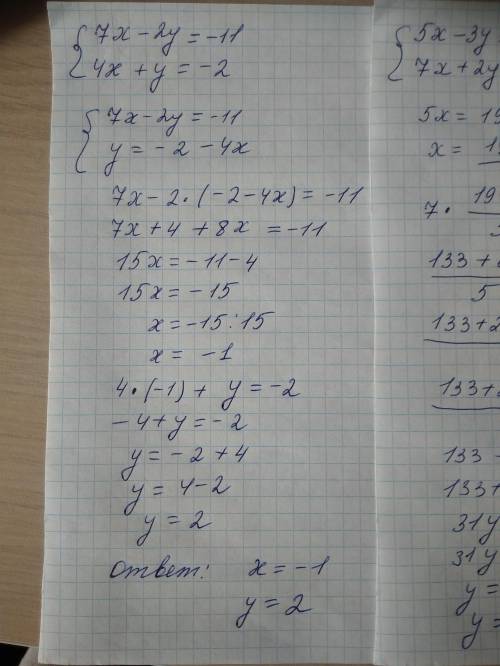 7x - 2y = -11
4x + y = -2
7x - 2y = -11
y = -2 - 4x
7x - 2 · (-2 - 4x) = -11
7x + 4 + 8x = -11
15x = -11 - 4
15x = -15
x = -15 : 15
x = -1
4 · (-1) + y = -2
-4 + y = -2
y = -2 + 4
y = 4 - 2
y = 2
ответ: x = -1
y = 2
5x - 3y
7x + 2y
5x = 19
x =
7 · 19
133 +
5
133 + 2
133 +
133 -
133 +
31y
31y
y =
y =